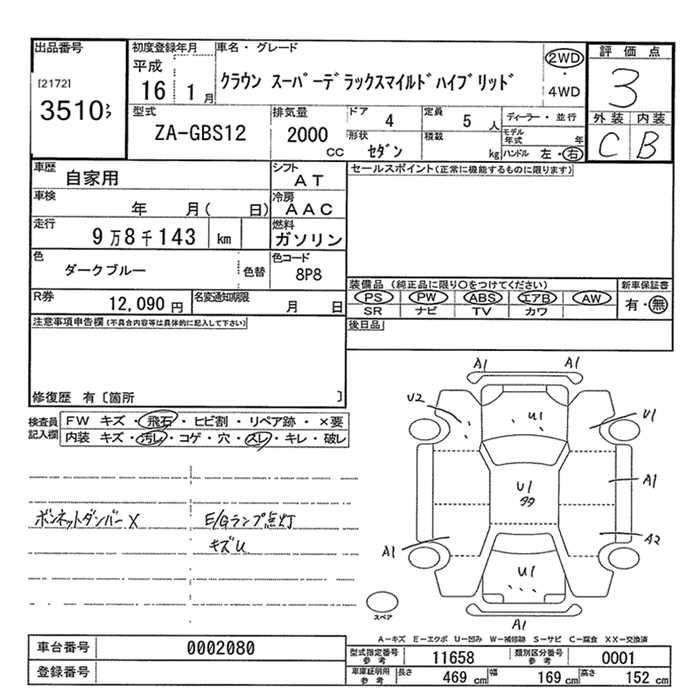 出品番号 初度登録年月 車名・グレード 評価点
[2172] 平成 クラウン スーパーデラックスマイルドハイブリッド 2WD 3
3510 16年 1月 ・ 4WD
型式 排気量 ドア 4 定員 5人 ディーラー・並行 外装 内装
ZA-GBS12 2000 CC 形状 セダン 積載 kg モデル年式 年 C B
ハンドル 左・右
車歴 自家用 シフト AT セールスポイント(正常に機能するものに限ります)
車検 年 月( 日) 冷房 AAC
走行 9万8千143 km 燃料 ガソリン
色 ダークブルー 色替 色コード 8P8
装備品 (純正品に限り○をつけてください) 新車保証書
R券 12,090円 名変通知期限 月 日 PS PW ABS エアB AW 有・無
SR ナビ TV カワ
注意事項申告欄 (不具合内容等は具体的に記入して下さい) 後日品
修復歴 有〔箇所 〕
検査員記入欄 FW キズ・飛石・ヒビ割・リペア跡・×要
内装 キズ・汚レ・コゲ・穴・スレ・キレ・破レ
A1 A1
U2 U1 U1
U1 A1
ボンネットダンパーX E/Gランプ点灯
キズU
A1 A2
U1
スペア A1
A-キズ E-エクボ U-凹み W-補修跡 S-サビ C-腐食 XX-交換済
車台番号 0002080 型式指定番号 参考 11658 類別区分番号 参考 0001
登録番号 車庫証明用 参考 長さ 469 cm 幅 169 cm 高さ 152 cm